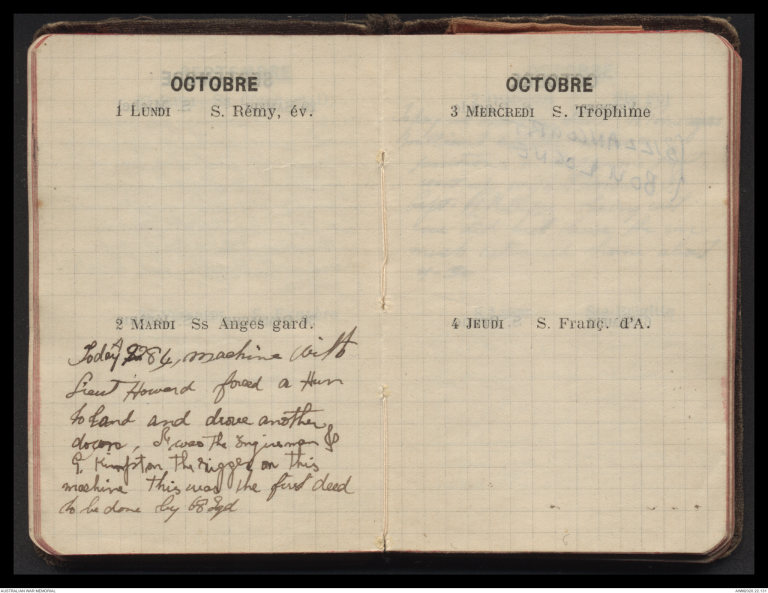 OCTOBRE
1 LUNDI S. Rémy, év.
2 MARDI Ss Anges gard.
Today 86, machine with
Lieut Howard forced a Hun
to land and drove another
down, I was the Engineman &
G. Kimpton, the rigger on this
machine this was the first deed
to be done by 68 Sqd
OCTOBRE
3 MERCREDI S. Trophime
4 JEUDI S. Franç. d'A.
AUSTRALIAN WAR MEMORIAL
AWM2020.22.131